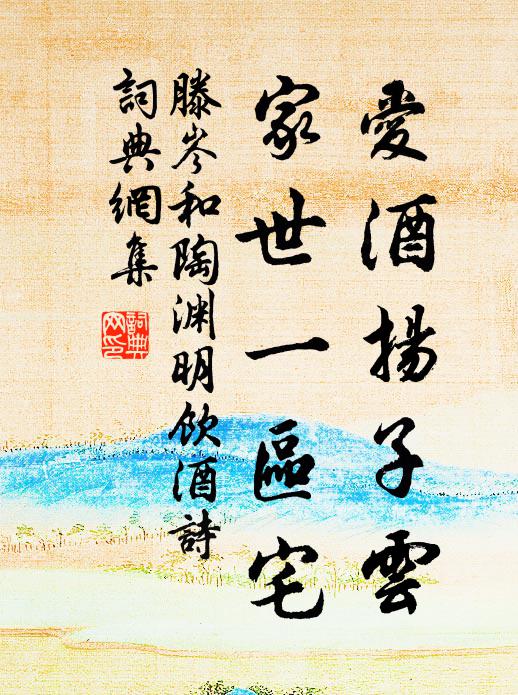 愛酒揚子雲
家世一區宅
滕岑和陶渊明飲酒詩
詞典網集
詞典
网印